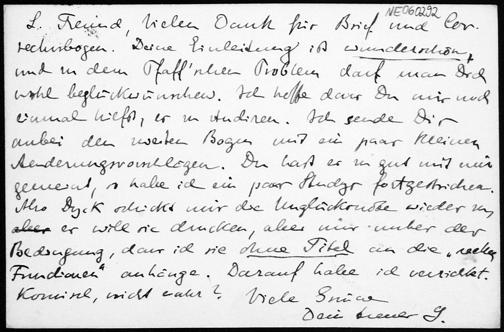 NE060292
L. Freund Vielen Dank für Brief und Cor-
recturbogen. Deine Einleitung ist wunderschön,
und zu dem Pfaff'schen Problem darf man Dich
wohl beglückwünschen. Ich hoffe dass Du mir noch
einmal hilfst, es zu studiren. Ich sende Dir
anbei den zweiten Bogen mit ein paar kleinen
Aenderungsvorschlägen. Du hast es zu gut mit mir
gemeint, so habe ich ein paar Study's fortgestrichen.
Also Dyck schickt mir die Unglücksnote wieder zu,
aber er will sie drucken, aber nur unter der
Bedingung, dass ich sie ohne Titel an die „reellen
Functionen“ anhänge. Darauf habe ich verzichtet.
Komisch, nicht wahr? Viele Grüsse
Dein treuer S.